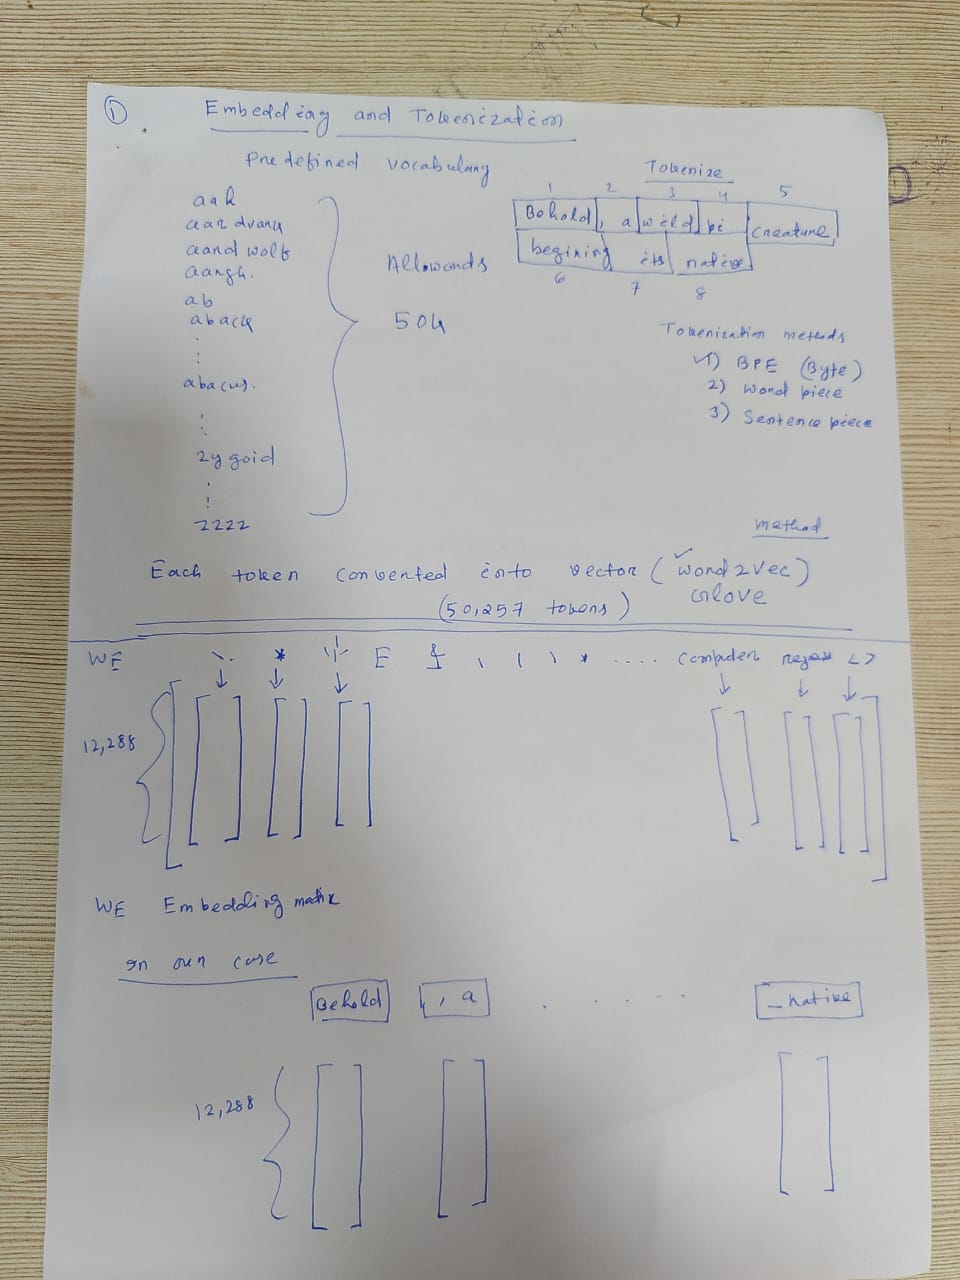 1
Embedding and Tokenization
Predefined vocabulary
Tokenize
1 2 3 4 5
aah
aardvark
aardwolf
aargh.
ab
aback
abacus.
zygoid
zzzz
All words
50k
Behold , a wild pi creature
begining its native
6 7 8
Tokenization methods
1) BPE (Byte)
2) Word piece
3) Sentence piece
method
Each token converted into vector (word2vec)
Glove
(50,257 tokens)
WE * E , * .... < >
12,288
WE Embedding matix
In our case
Behold , a . . . . . _native
12,288